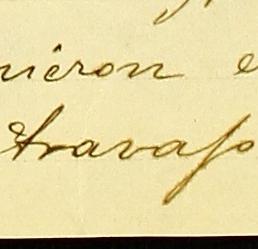 nieron e
travajo